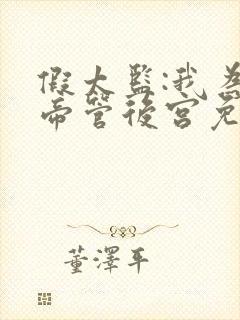 假太監:我為
帝管後宮免
董澤平